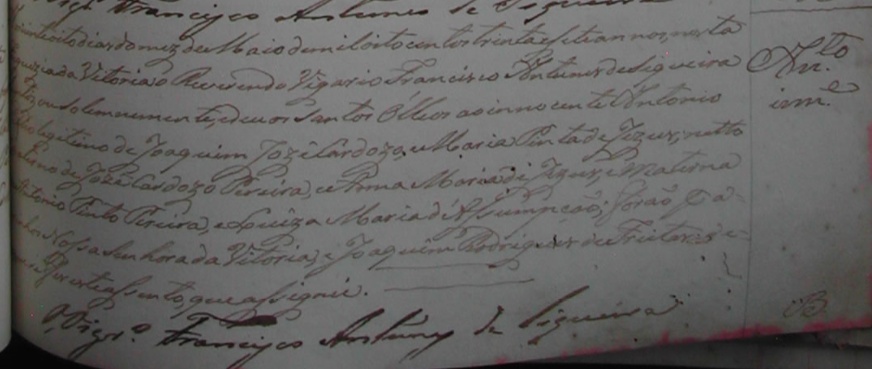 Francisco Antunes de Siqueira
vinteoito dias do mez de Maio de mil oito centos trinta e sete annos, nesta
guezia da Vitoria o Reverendo Vigario Francisco Antunes de Siqueira
tizou solemnemente, e deu os Santos Oleos ao innocente Antonio
legitimo de Joaquim Jozé Cardozo, e Maria Pinta de Jezus; netto
terno de Jozé Cardozo Pereira, e Anna Maria de Jezus, e Materna
Antonio Pinto Pereira, e Luiza Maria d'Assumpção; forão Pa-
Nossa Senhora da Vitoria, e Joaquim Rodrigues de Freitas; de
fiz este assento, que assignei.
O Vigrº. Francisco Antunes de Siqueira
Antº
inne
B